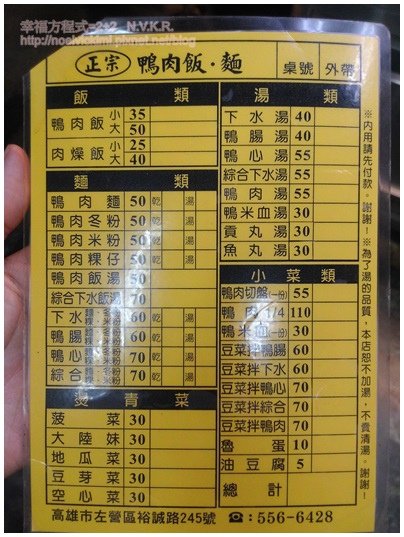 幸福方程式=2+2 N.V.K.R.
正宗 鴨肉飯．麵 桌號 外帶
飯類
鴨肉飯 小 35
大 50
肉燥飯 小 25
大 40
麵類
鴨肉麵 50 乾 湯
鴨肉冬粉 50 乾 湯
鴨肉米粉 50 乾 湯
鴨肉粿仔 50 乾 湯
鴨肉飯湯 50
綜合下水飯湯 70
下水 60 乾 湯
鴨腸 60 乾 湯
鴨心 70 乾 湯
綜合 70 乾 湯
燙青菜
菠菜 30
大陸妹 30
地瓜菜 30
豆芽菜 30
空心菜 30
湯類
下水湯 40
鴨腸湯 40
鴨心湯 55
綜合下水湯 55
鴨肉湯 55
鴨米血湯 30
貢丸湯 30
魚丸湯 30
小菜類
鴨肉切盤(一份) 55
鴨肉1/4 110
鴨米血(一份) 30
豆菜拌鴨腸 60
豆菜拌下水 60
豆菜拌鴨心 70
豆菜拌綜合 70
豆菜拌鴨肉 70
魯蛋 10
油豆腐 5
總計
※內用請先付款。謝謝！※為了湯的品質，本店恕不加湯，不賣清湯。謝謝！
高雄市左營區裕誠路245號 ☎:556-6428